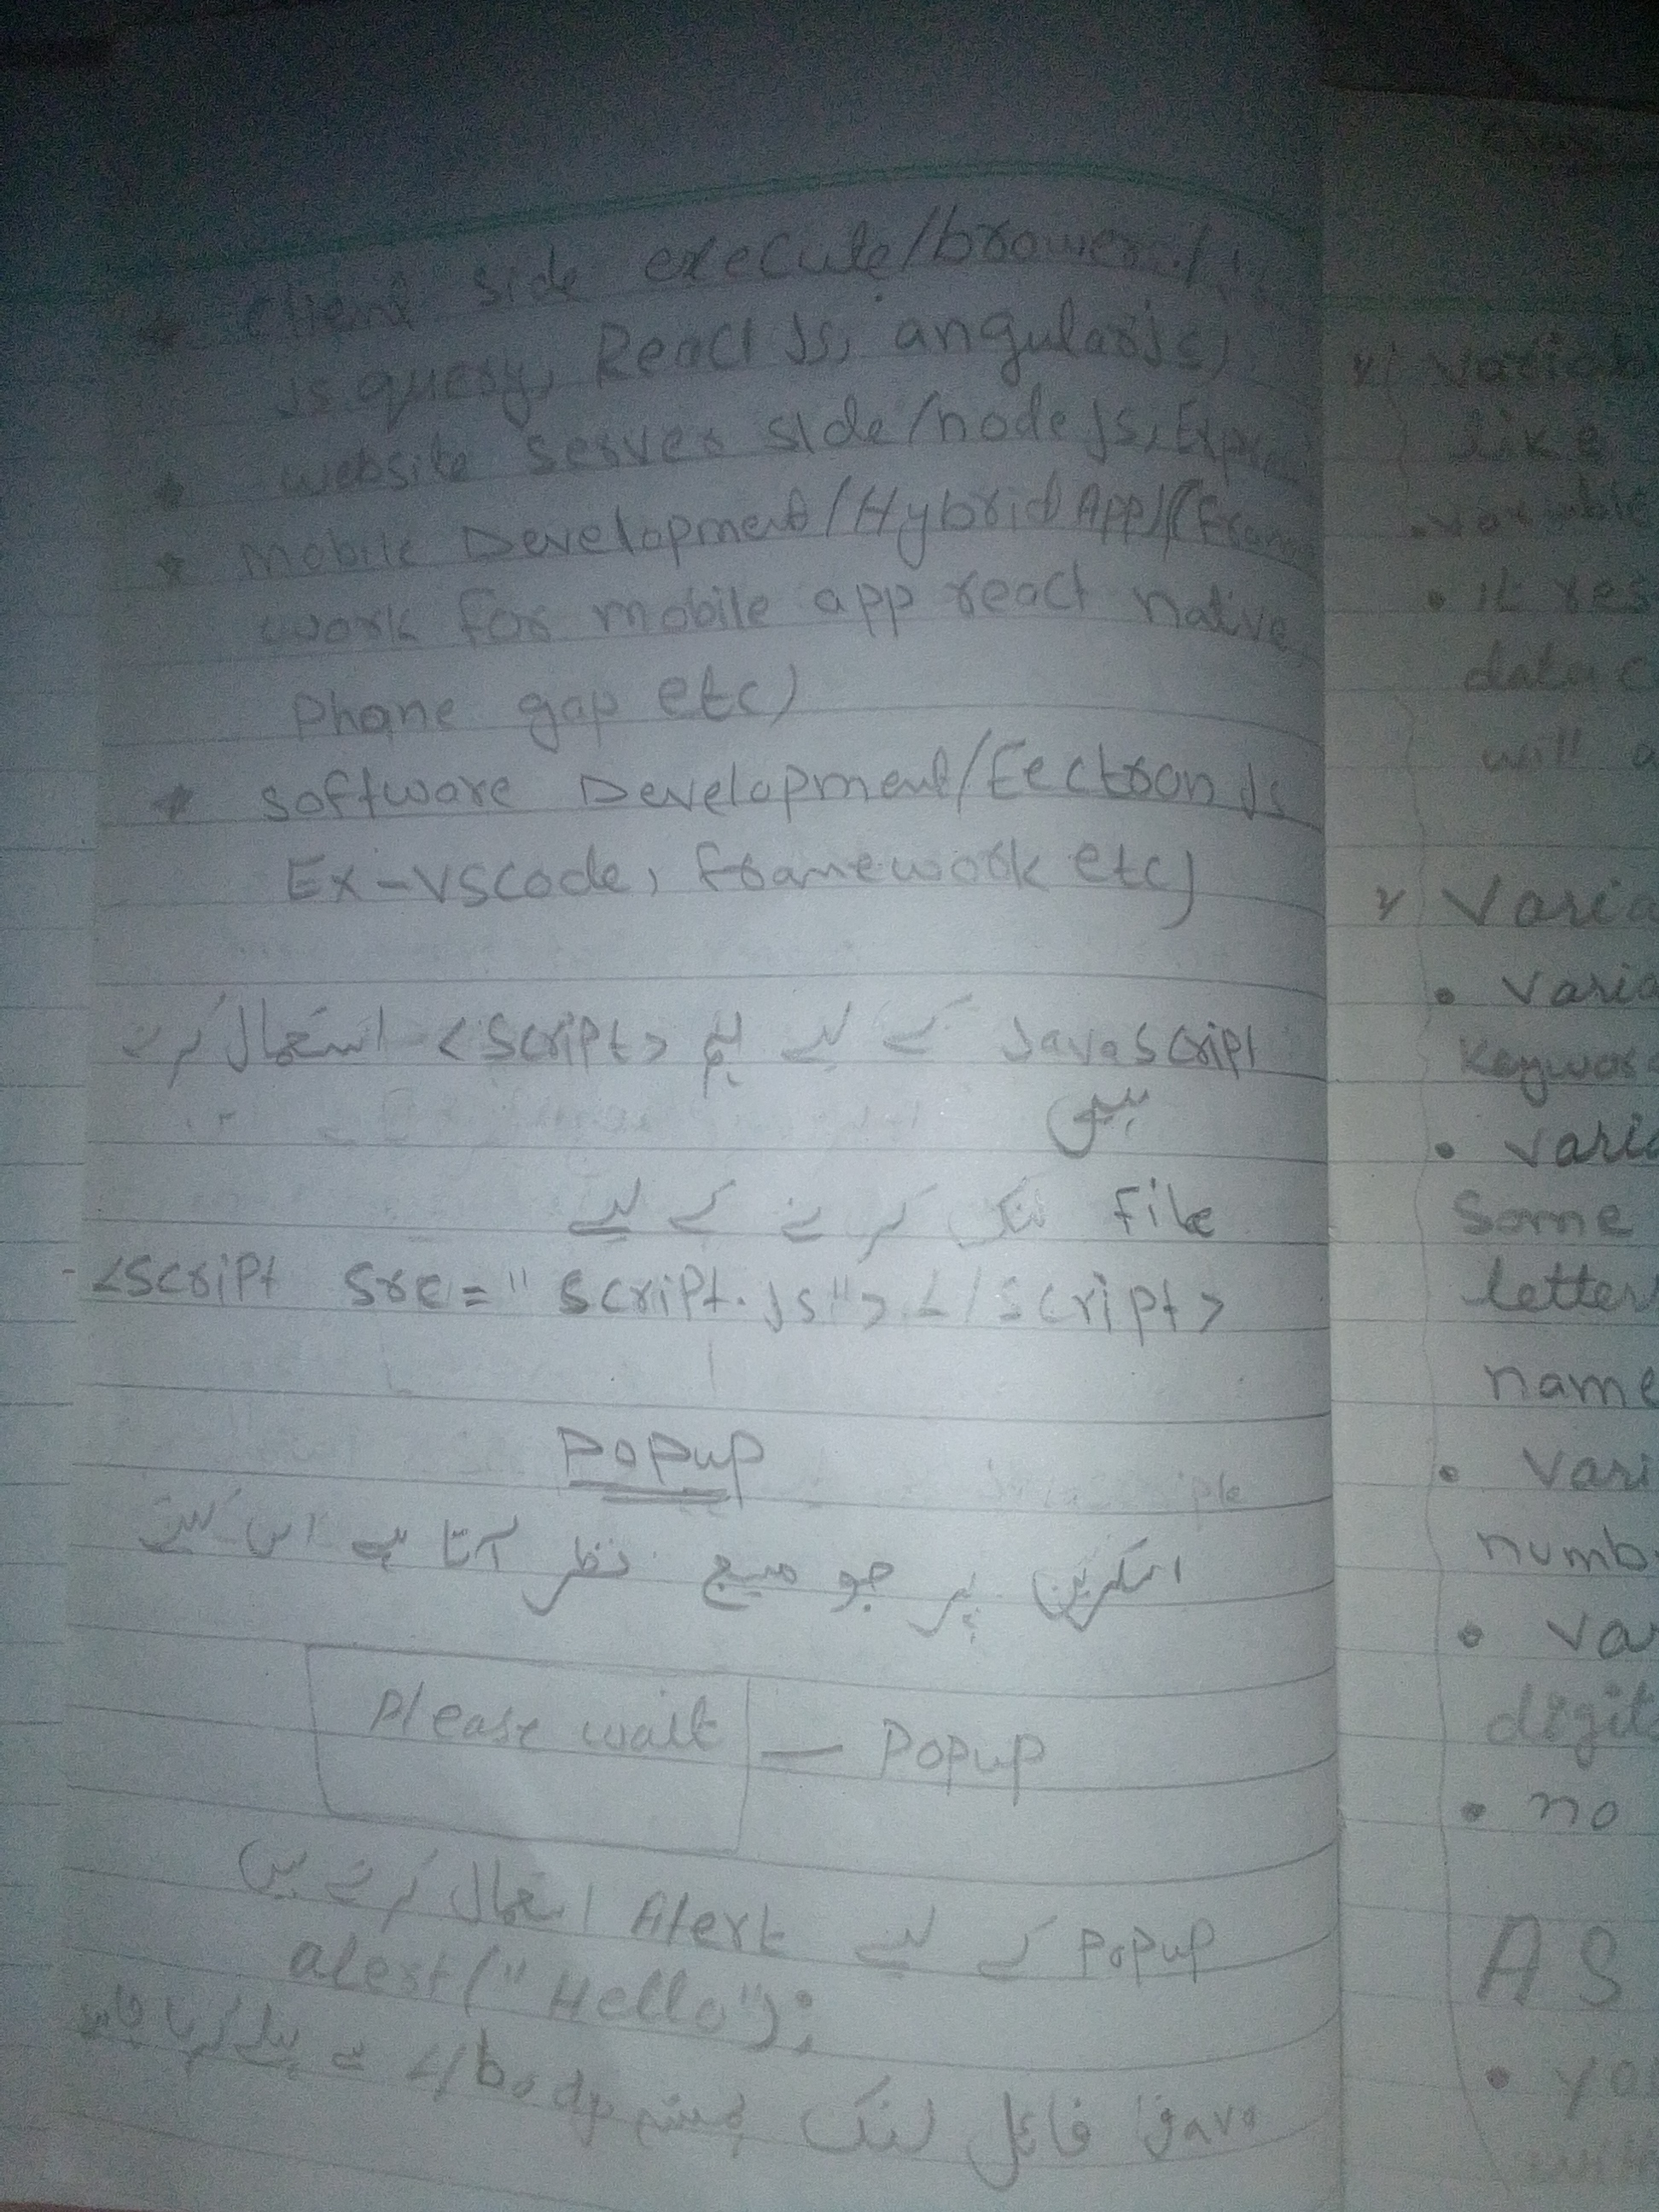 client side execute/brower/
Js query, React Js, angularjs)
website server side/node Js, Exp
Mobile Development/Hybrid App/(Fram
work for mobile app react native
Phone gap etc)
software Development/Eectron Js
Ex-VSCode, framework etc)
JavaScript کے لیے ہم <script> استعمال کرتے
ہیں
File لنک کرنے کے لیے
<script src="script.js"></script>
Popup
اسکرین پر جو میسج نظر آتا ہے اس کیلئے
Please wait — Popup
Popup کے لیے Alert استعمال کرتے ہیں
alert("Hello");
Java فائل لنک ہمیشہ </body سے پہلے کرنا چاہیے
variab
like
variable
it res
data c
will a
Varia
varia
keywor
varia
Some
letter
name
vari
numb
va
digit
no
AS
yo